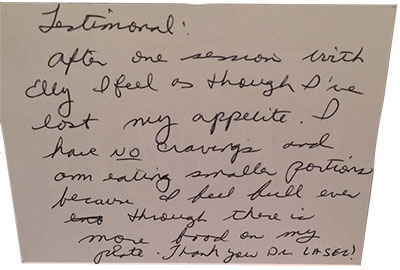 Testimonal:
After one session with
Elly I feel as though I've
lost my appetite. I
have NO cravings and
am eating smaller portions
because I feel full even
through there is
more food on my
plate. Thank you Dr. LASER!